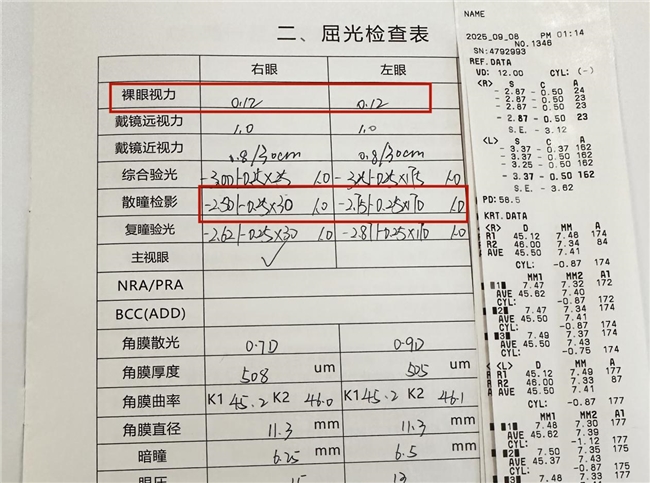 二、屈光检查表
右眼 左眼
裸眼视力 0.12 0.12
戴镜远视力 1.0 1.0
戴镜近视力 0.8/30cm 0.8/30cm
综合验光 -3.00/-0.25×25 1.0 1.0
散瞳检影 -2.50/-0.25×30 1.0 -2.75/-0.25×170 1.0
复瞳验光 -2.62/-0.25×30 1.0 -2.87/-0.25×170 1.0
主视眼 ✓
NRA/PRA
BCC(ADD)
角膜散光 0.7D 0.9D
角膜厚度 508 um 505 um
角膜曲率 K1 45.2 K2 46.0 K1 45.2 K2 46.1
角膜直径 11.3 mm 11.3 mm
暗瞳 6.25 mm 6.5 mm
眼压 15 13
NAME
2025_09_06 PM 01:14
NO.1346
SN:4792993
REF.DATA
VD: 12.00 CYL: (-)
<R> S C A
- 2.87 - 0.50 24
- 2.87 - 0.50 23
- 2.87 - 0.50 23
- 2.87 - 0.50 23
S.E. - 3.12
<L> S C A
- 3.37 - 0.37 162
- 3.25 - 0.50 162
- 3.37 - 0.50 162
S.E. - 3.62
PD: 58.5
KRT.DATA
<R> D MM A
R1 45.12 7.48 174
R2 46.00 7.34 84
AVE 45.50 7.41
CYL: -0.87 174
MM1 MM2 A1
1 7.47 7.32 172
AVE 45.62 7.40
CYL: -0.87 172
2 7.47 7.34 174
AVE 45.50 7.41
CYL: -0.87 174
3 7.49 7.37 174
AVE 45.50 7.43
CYL: -0.75 174
<L> D MM A
R1 45.12 7.49 177
R2 46.00 7.33 87
AVE 45.50 7.41
CYL: -0.87 177
MM1 MM2 A1
1 7.48 7.30 177
AVE 45.62 7.39
CYL: -1.12 177
2 7.50 7.35 175
AVE 45.37 7.43
CYL: -0.87 175
3 7.48 7.33 177